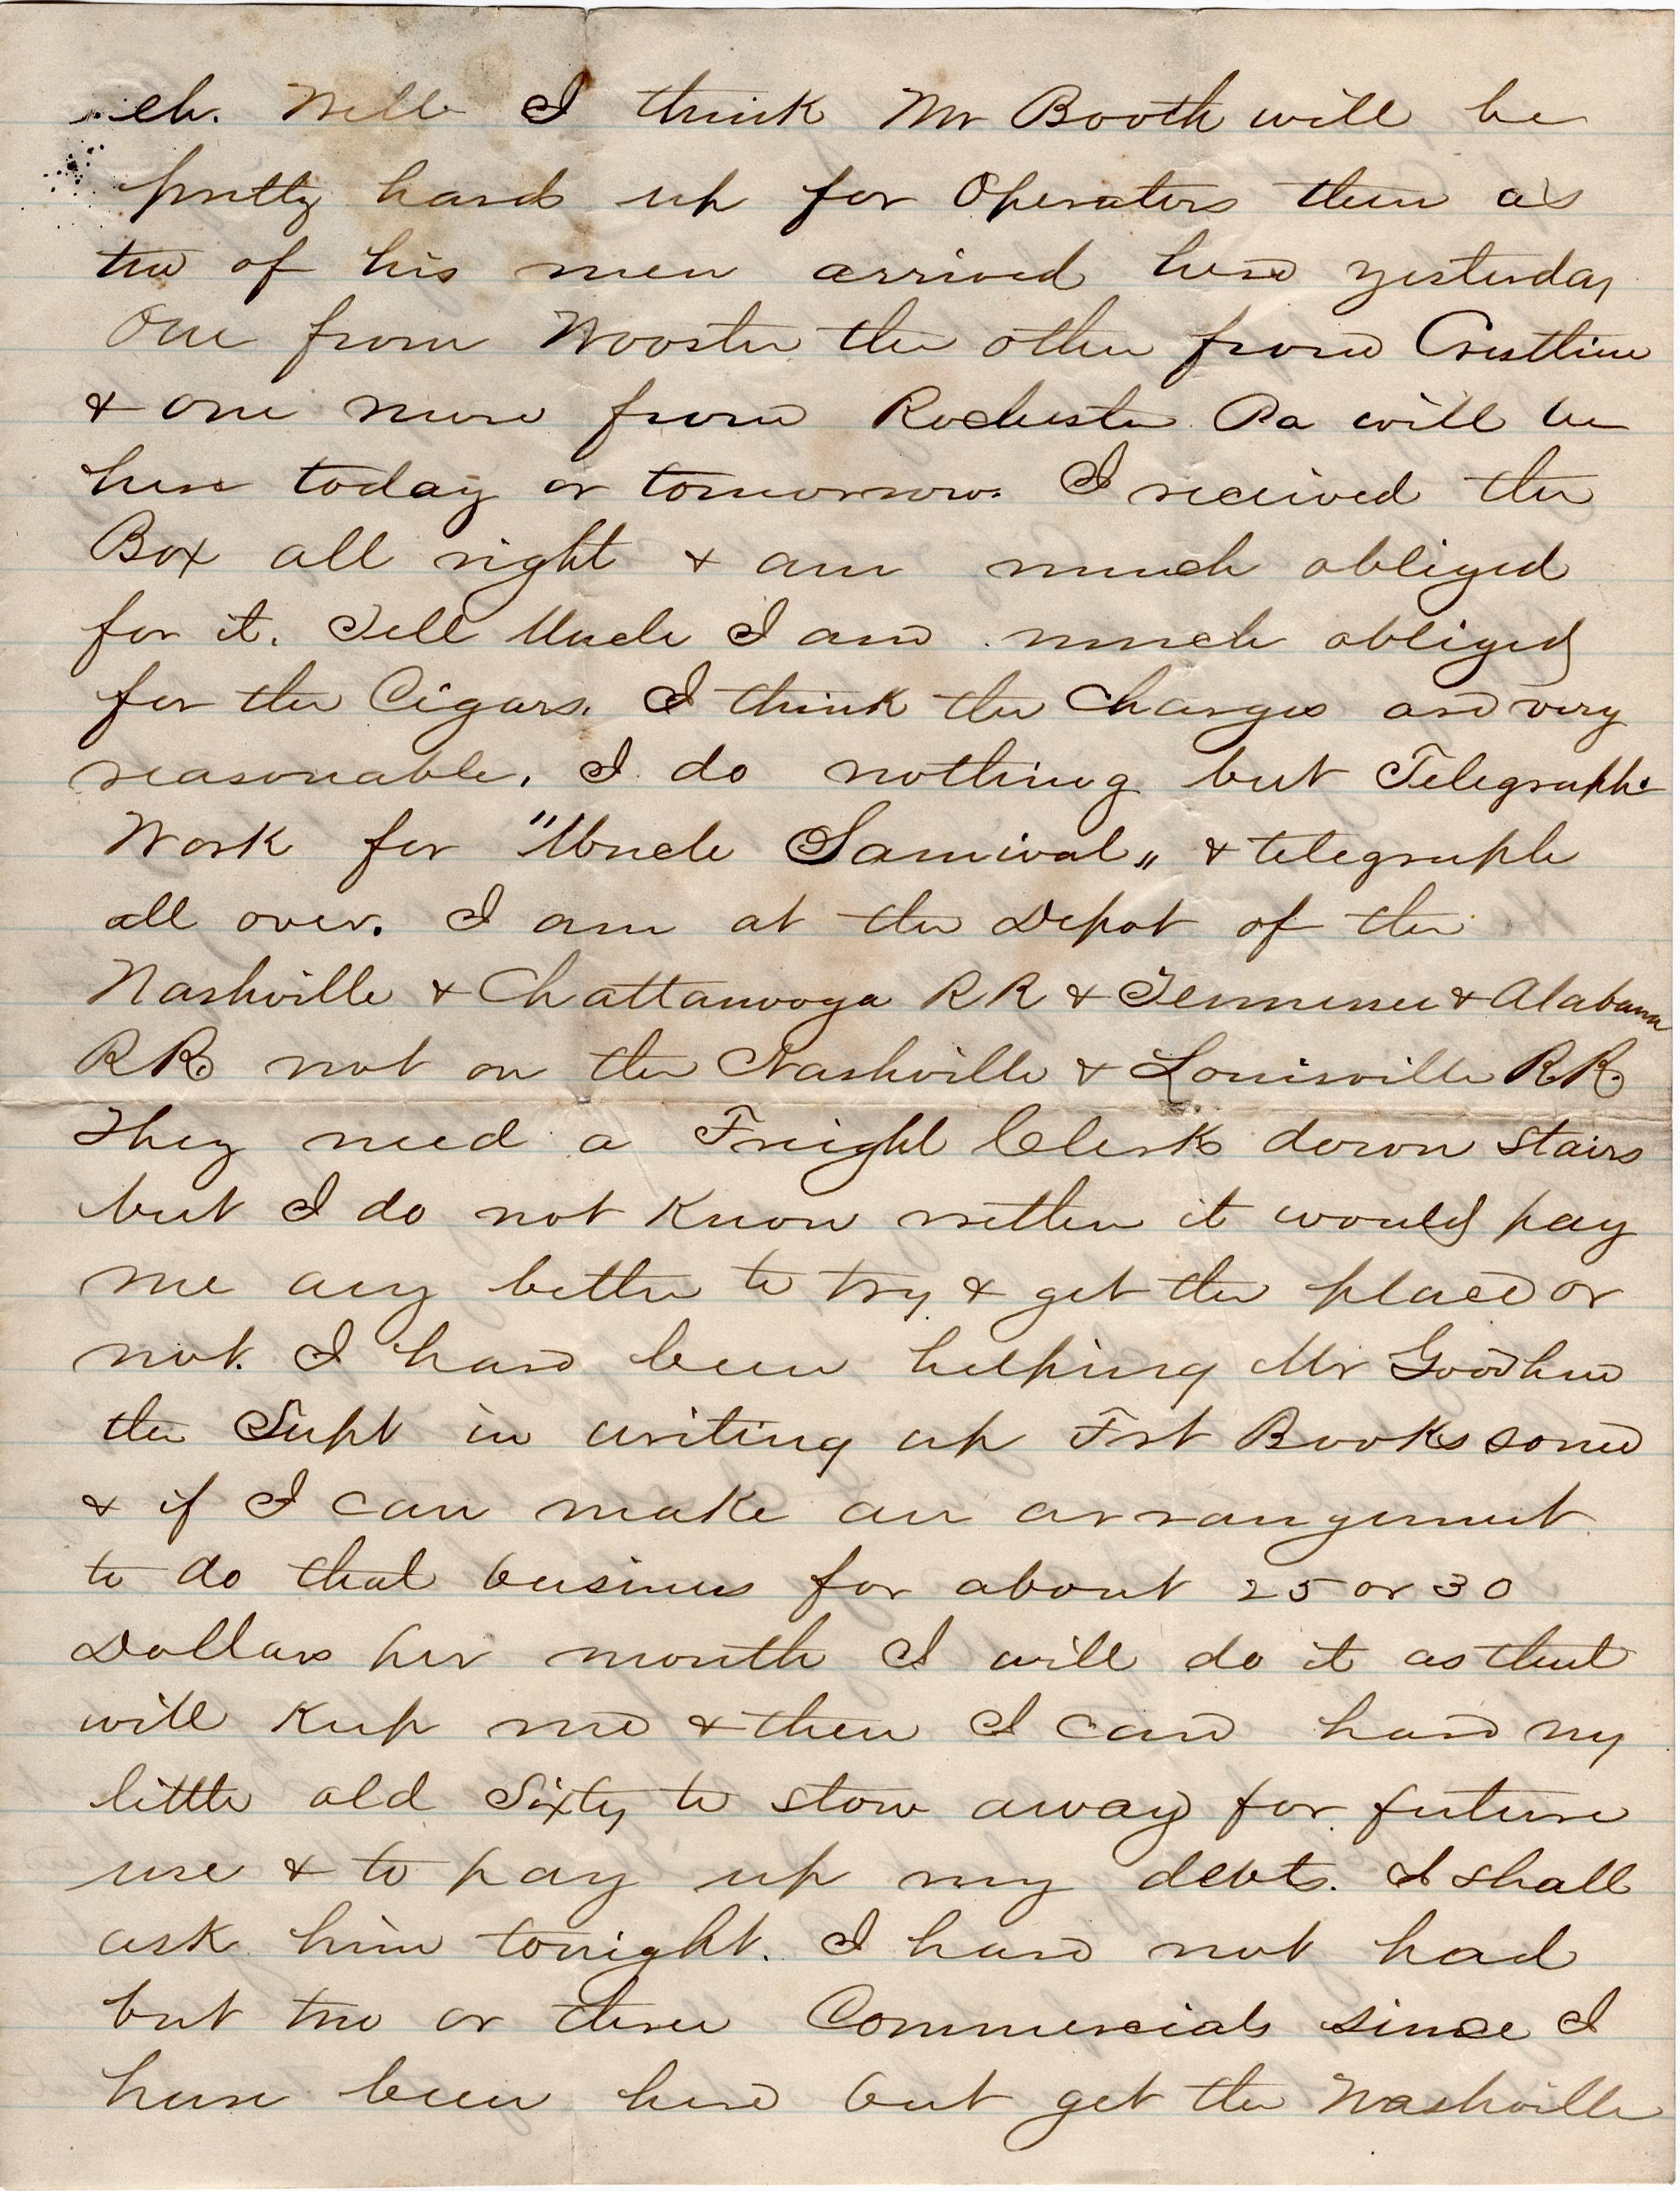 eh. Well I think Mr Booth will be
pretty hard up for Operators then as
two of his men arrived here yesterday
One from Wooster the other from Crestline
& one more from Rochester Pa will be
here today or tomorrow. I received the
Box all right & am much obliged
for it. Tell Uncle I am much obliged
for the Cigars. I think the Charges are very
reasonable. I do nothing but Telegraph
Work for "Uncle Samival" & telegraph
all over. I am at the Depot of the
Nashville & Chattanooga RR & Tennessee & Alabama
RR not on the Nashville & Louisville RR.
They need a Freight Clerk down stairs
but I do not know wether it would pay
me any better to try & get the place or
not. I have been helping Mr Goodhue
the Supt in writing up Frt Books some
& if I can make an arrangement
to do that business for about 25 or 30
Dollars per month I will do it as that
will keep me & then I can have my
little old Sixty to stow away for future
use & to pay up my debts. I shall
ask him tonight. I have not had
but two or three Commercials since I
have been here but get the Nashville